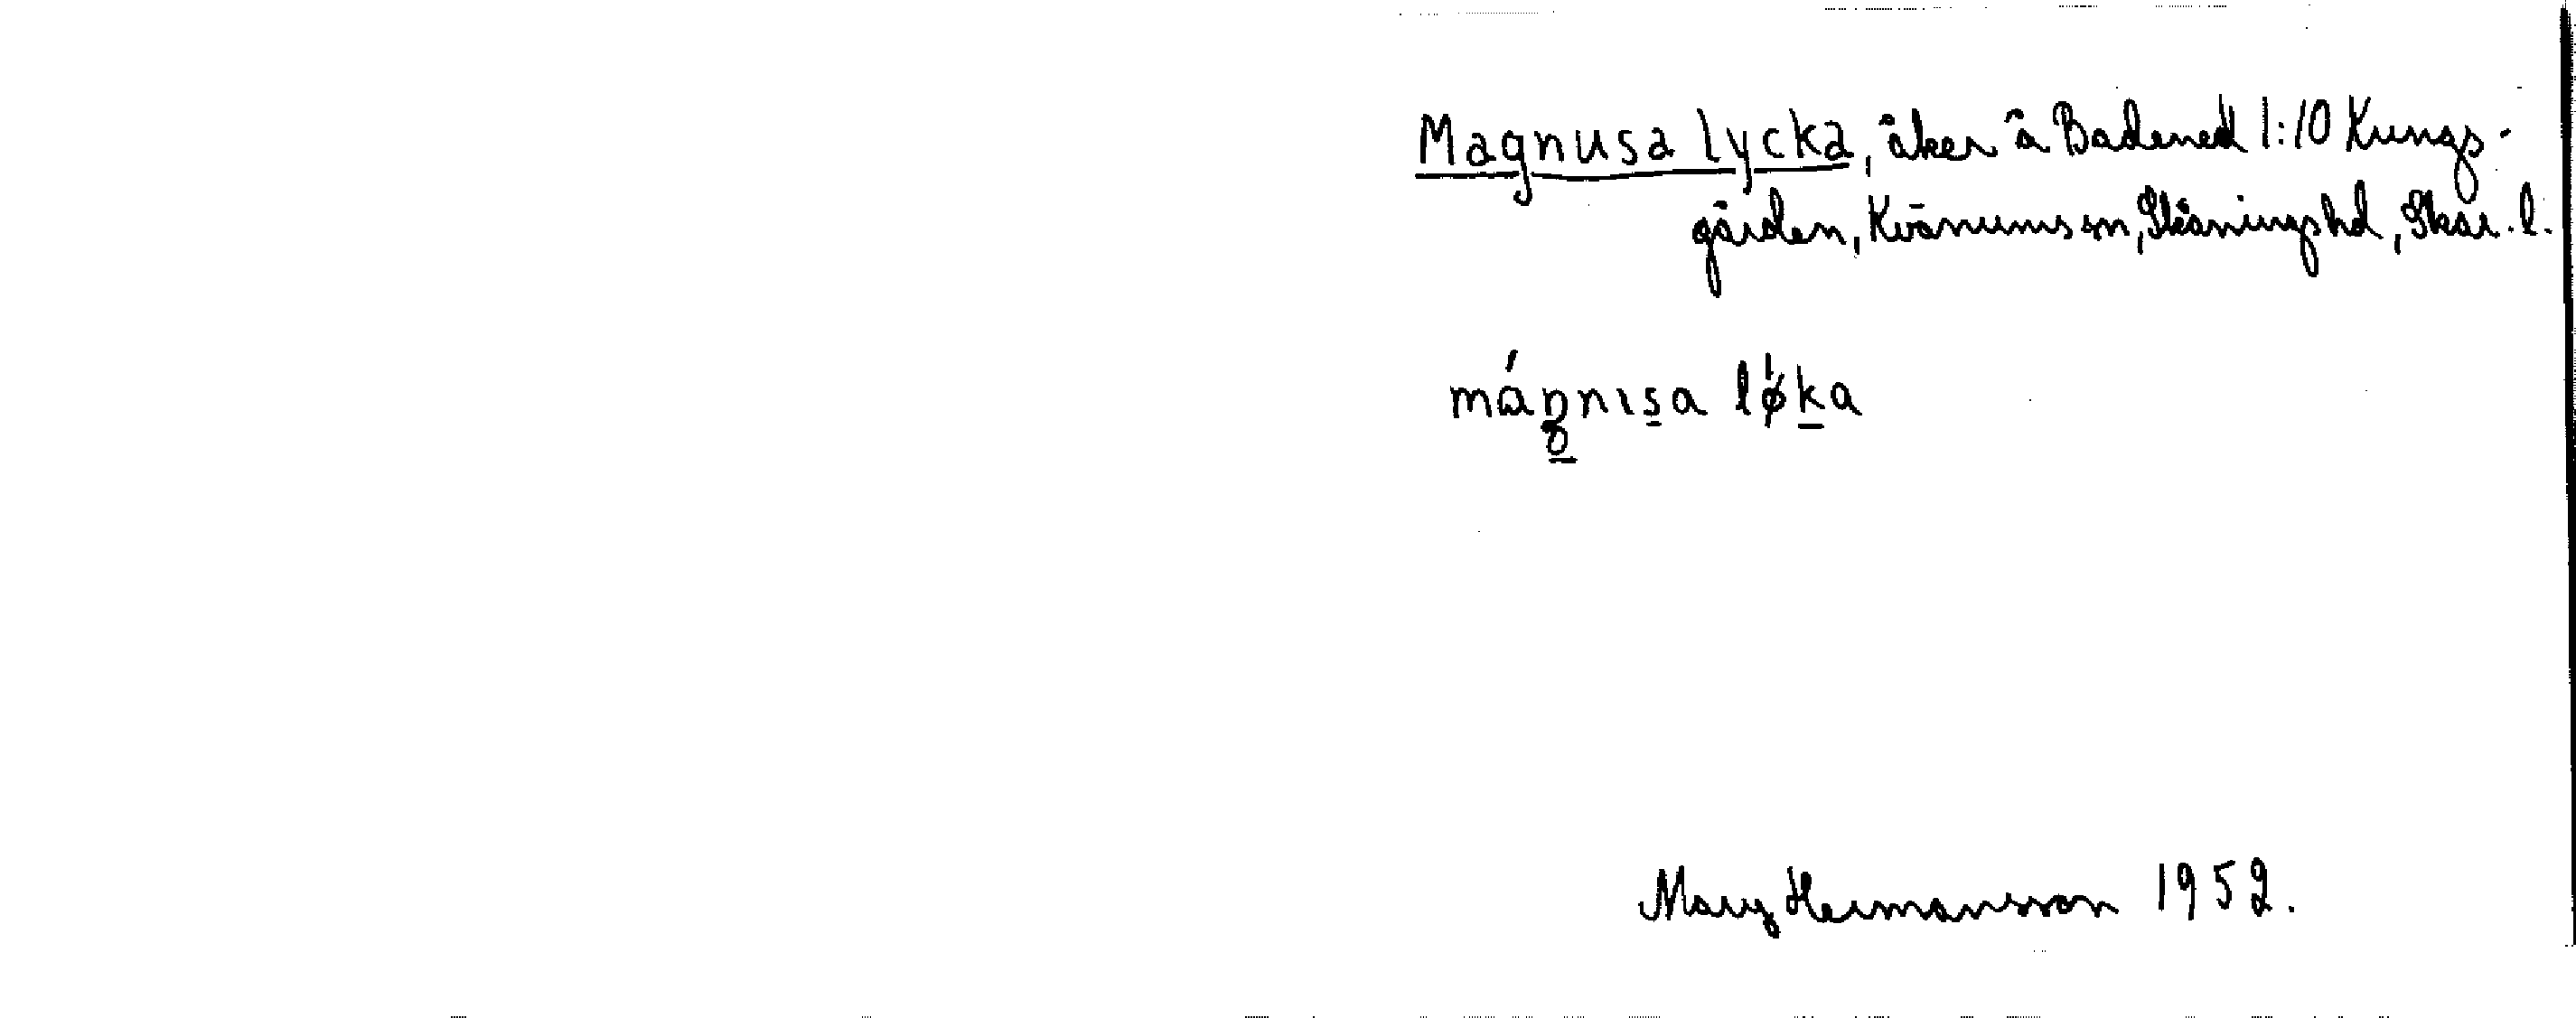 Magnusa lycka, åker å Badened 1:10 Kungs-
gården, Kvänums sn, Skånings hd, Skar. l.
máŋnısa lǿka
Mary Hermansson 1952.